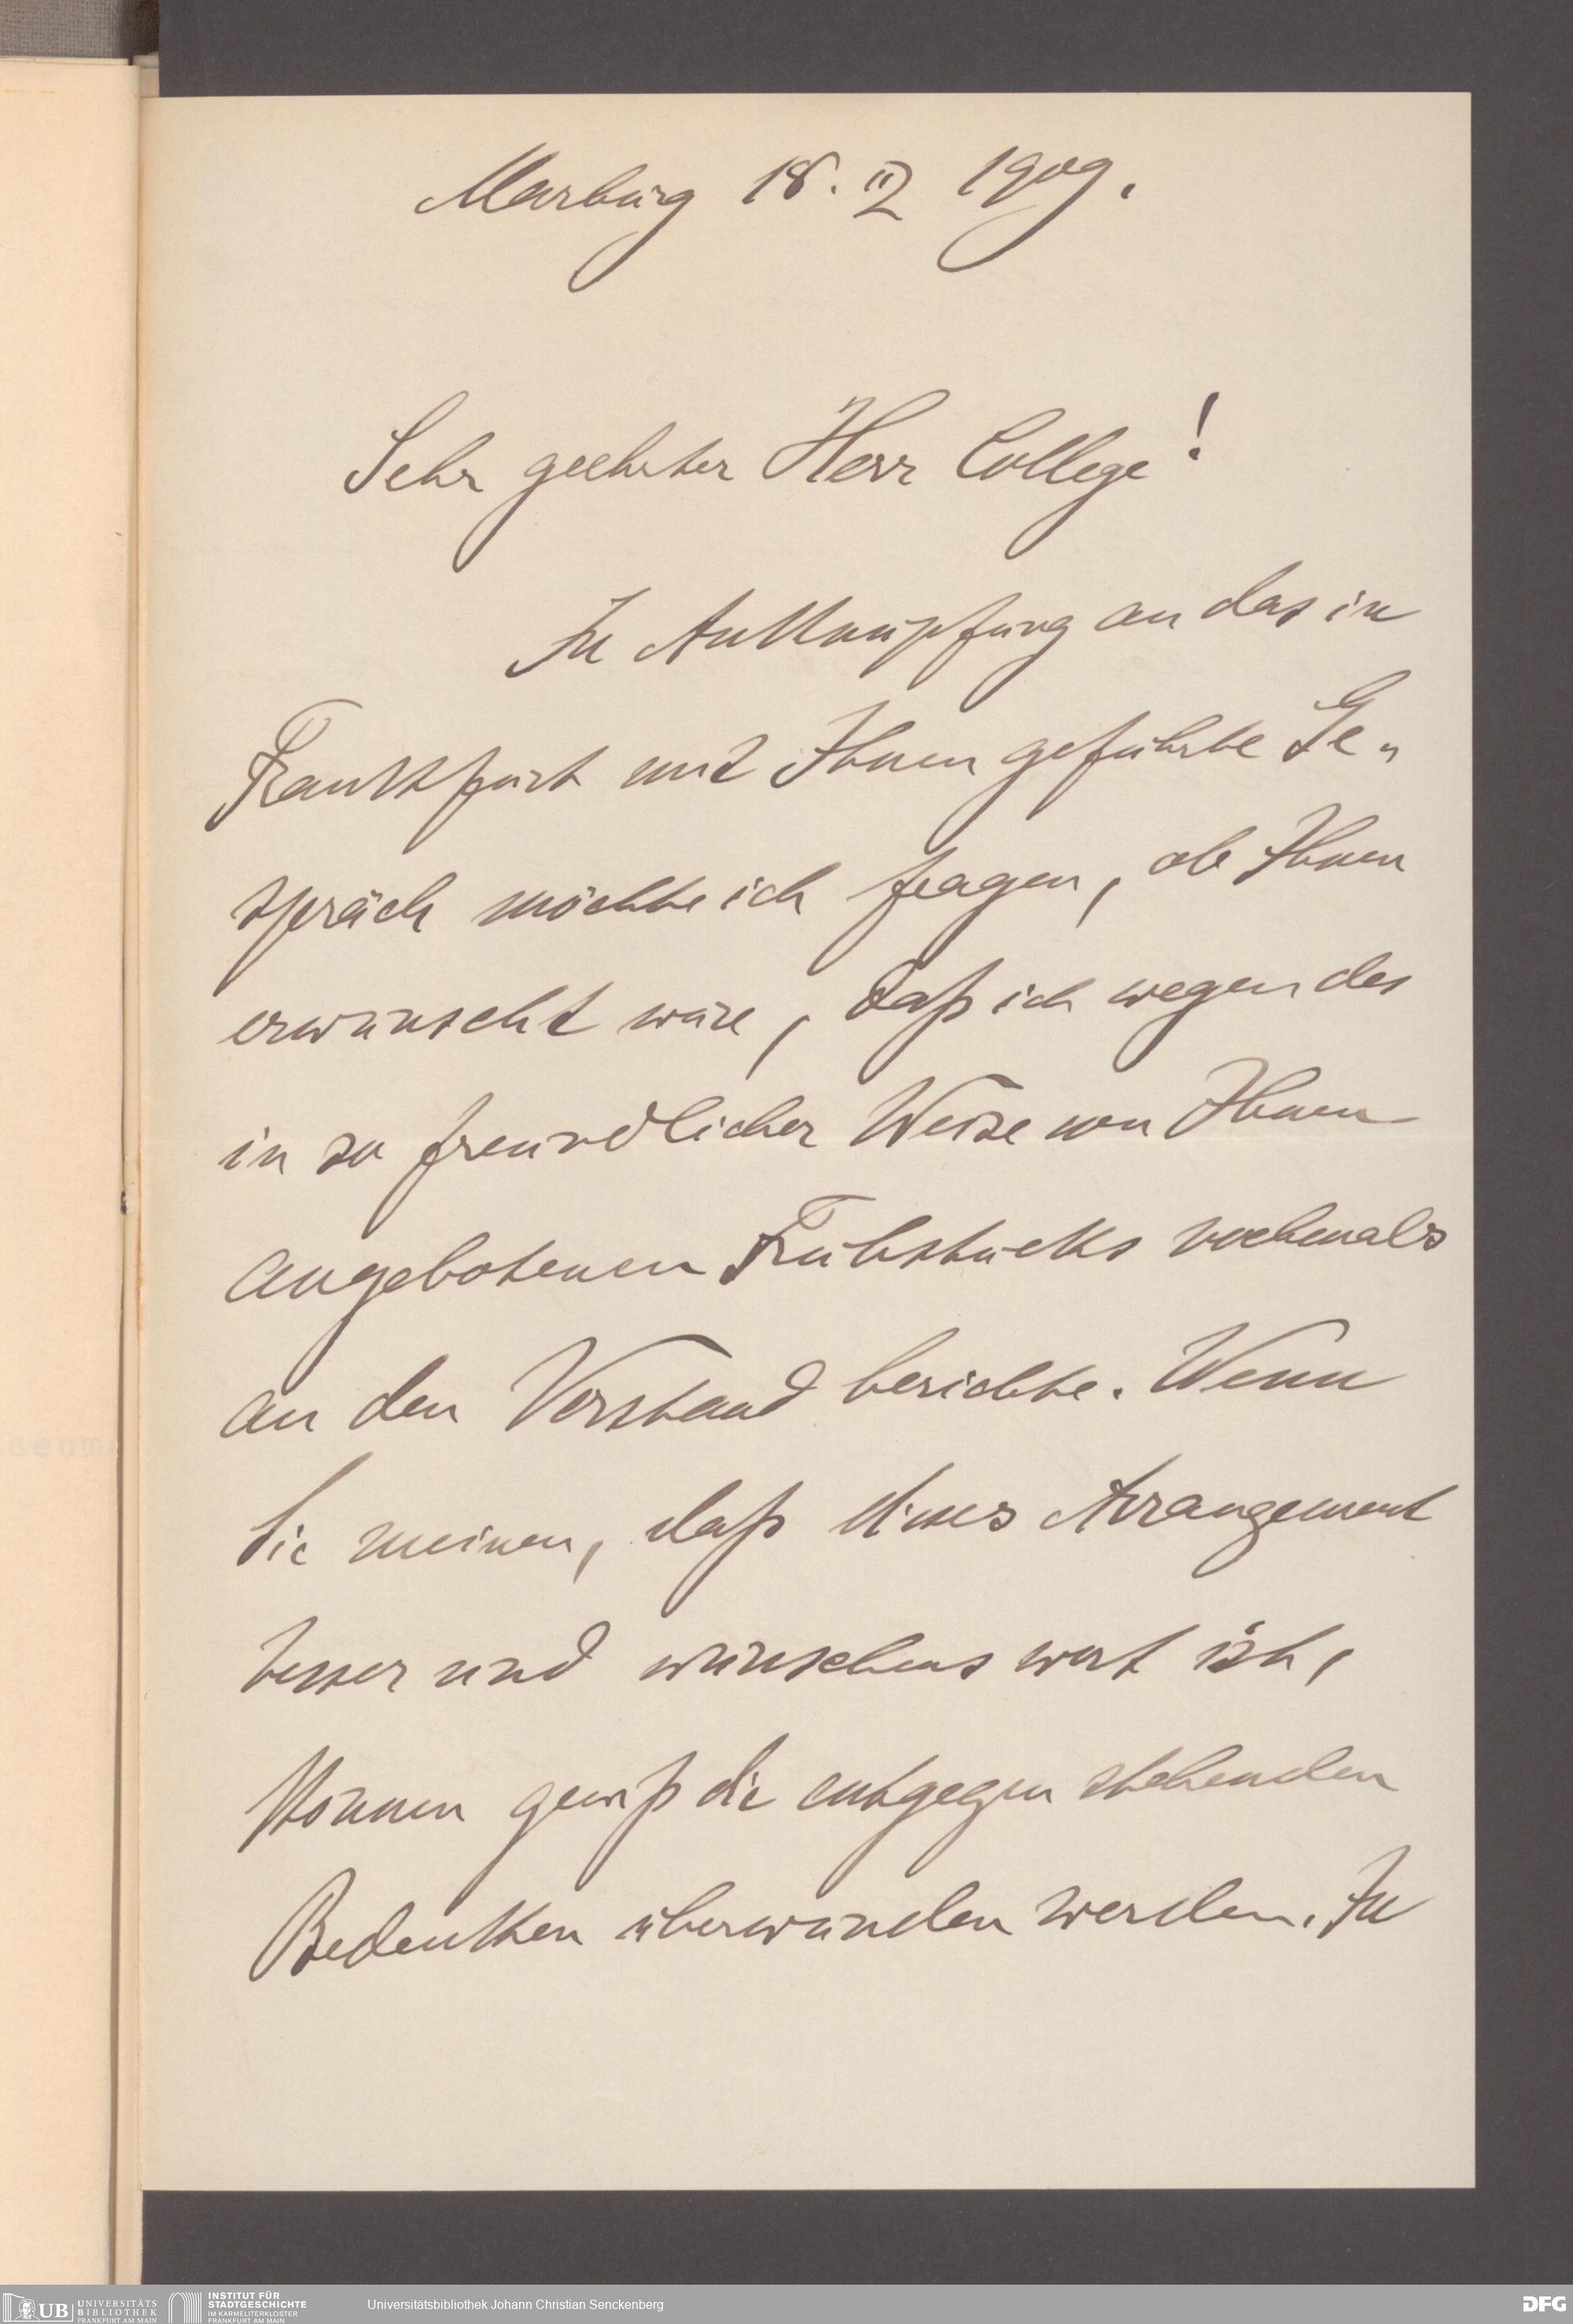 Marburg 18. II 1909.
Sehr geehrter Herr College!
In Anknüpfung an das in
Frankfurt mit Ihnen geführte Ge-
spräch möchte ich fragen, ob Ihnen
erwünscht wäre, daß ich wegen des
in so freundlicher Weise von Ihnen
angebotenen Frühstücks nochmals
an den Vorstand berichte. Wenn
Sie meinen, daß dieses Arrangement
besser und wünschens wert ist,
können gewiß die entgegen stehenden
Bedenken überwunden werden. In
UB UNIVERSITÄTS BIBLIOTHEK FRANKFURT AM MAIN
INSTITUT FÜR STADTGESCHICHTE IM KARMELITERKLOSTER FRANKFURT AM MAIN
Universitätsbibliothek Johann Christian Senckenberg
DFG